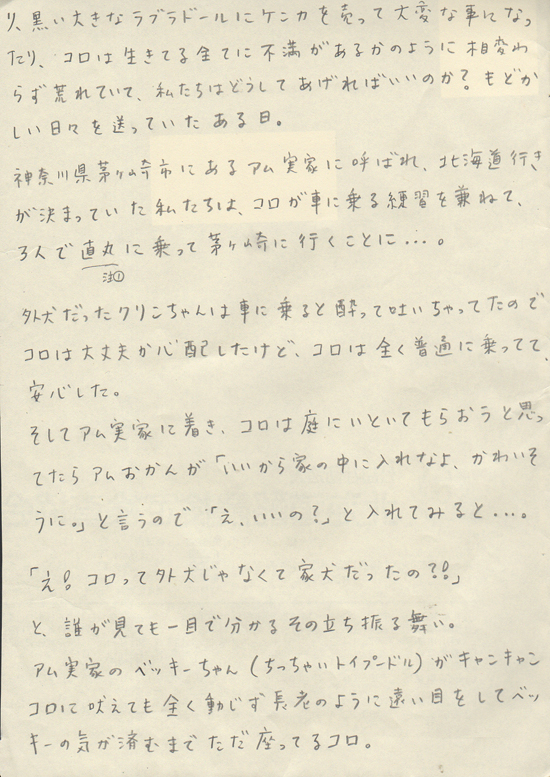 り、黒い大きなラブラドールにケンカを売って大変な事になっ
たり、コロは生きてる全てに不満があるかのように相変わ
らず荒れていて、私たちはどうしてあげればいいのか？もどか
しい日々を送っていたある日。
神奈川県茅ヶ崎市にあるアム実家に呼ばれ、北海道行き
が決まっていた私たちは、コロが車に乗る練習を兼ねて、
3人で直丸に乗って茅ヶ崎に行くことに…。
注①
外犬だったクリンちゃんは車に乗ると酔って吐いちゃってたので
コロは大丈夫か心配したけど、コロは全く普通に乗ってて、
安心した。
そしてアム実家に着き、コロは庭にいといてもらおうと思っ
てたらアムおかんが「いいから家の中に入れなよ、かわいそ
うに。」と言うので「え、いいの？」と入れてみると…。
「え！コロって外犬じゃなくて家犬だったの？！」
と、誰が見ても一目で分かるその立ち振る舞い。
アム実家のベッキーちゃん（ちっちゃいトイプードル）がキャンキャン
コロに吠えても全く動じず長老のように遠い目をしてベッ
キーの気が済むまでただ座ってるコロ。